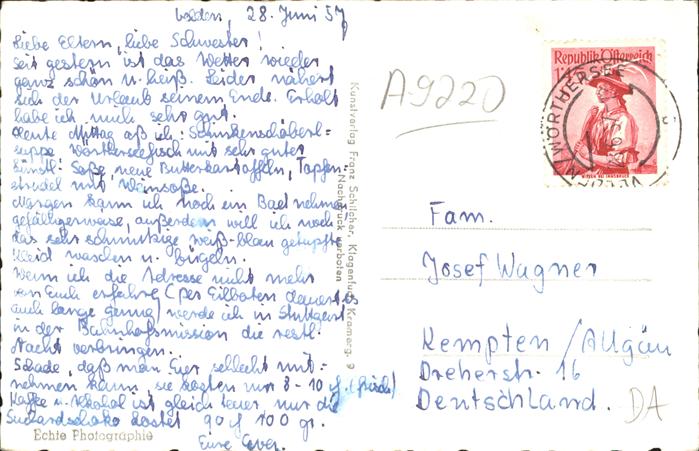 Velden, 28. Juni 57
Liebe Eltern, liebe Schwester!
Seit gestern ist das Wetter wieder
ganz schön u. heiß. Leider nähert
sich der Urlaub seinem Ende. Erholt
habe ich mich sehr gut.
Heute Mittag aß ich: Schinkenschöberl=
suppe Wörtherseefisch mit sehr guter
Soße, neue Butterkartoffeln, Topfen
strudel mit Weinsoße.
Morgen kann ich noch ein Bad nehmen
gefälligerweise, außerdem will ich noch
das sehr schmutzige weiß-blau getupfte
Kleid waschen u. bügeln.
Wenn ich die Adresse nicht mehr
von Euch erfahre (per Eilboten dauert es
auch lange genug) werde ich in Stuttgart
in der Bahnhofsmission die restl.
Nacht verbringen.
Schade, daß man Eier schlecht mit=
nehmen kann, sie kosten nur 8-10 (frisch)
Kaffee u. Schokol. ist gleich teuer, nur die
Suchardschoko kostet 90 100 gr.
Eure
Echte Photographie
Kunstverlag Franz Schilcher, Klagenfurt, Kramerg. 9
Nachdruck verboten
A9220
Republik Österreich
WÖRTHERSEE
Fam.
Josef Wagner
Kempten / Allgäu
Dreherstr. 16
Deutschland.
DA